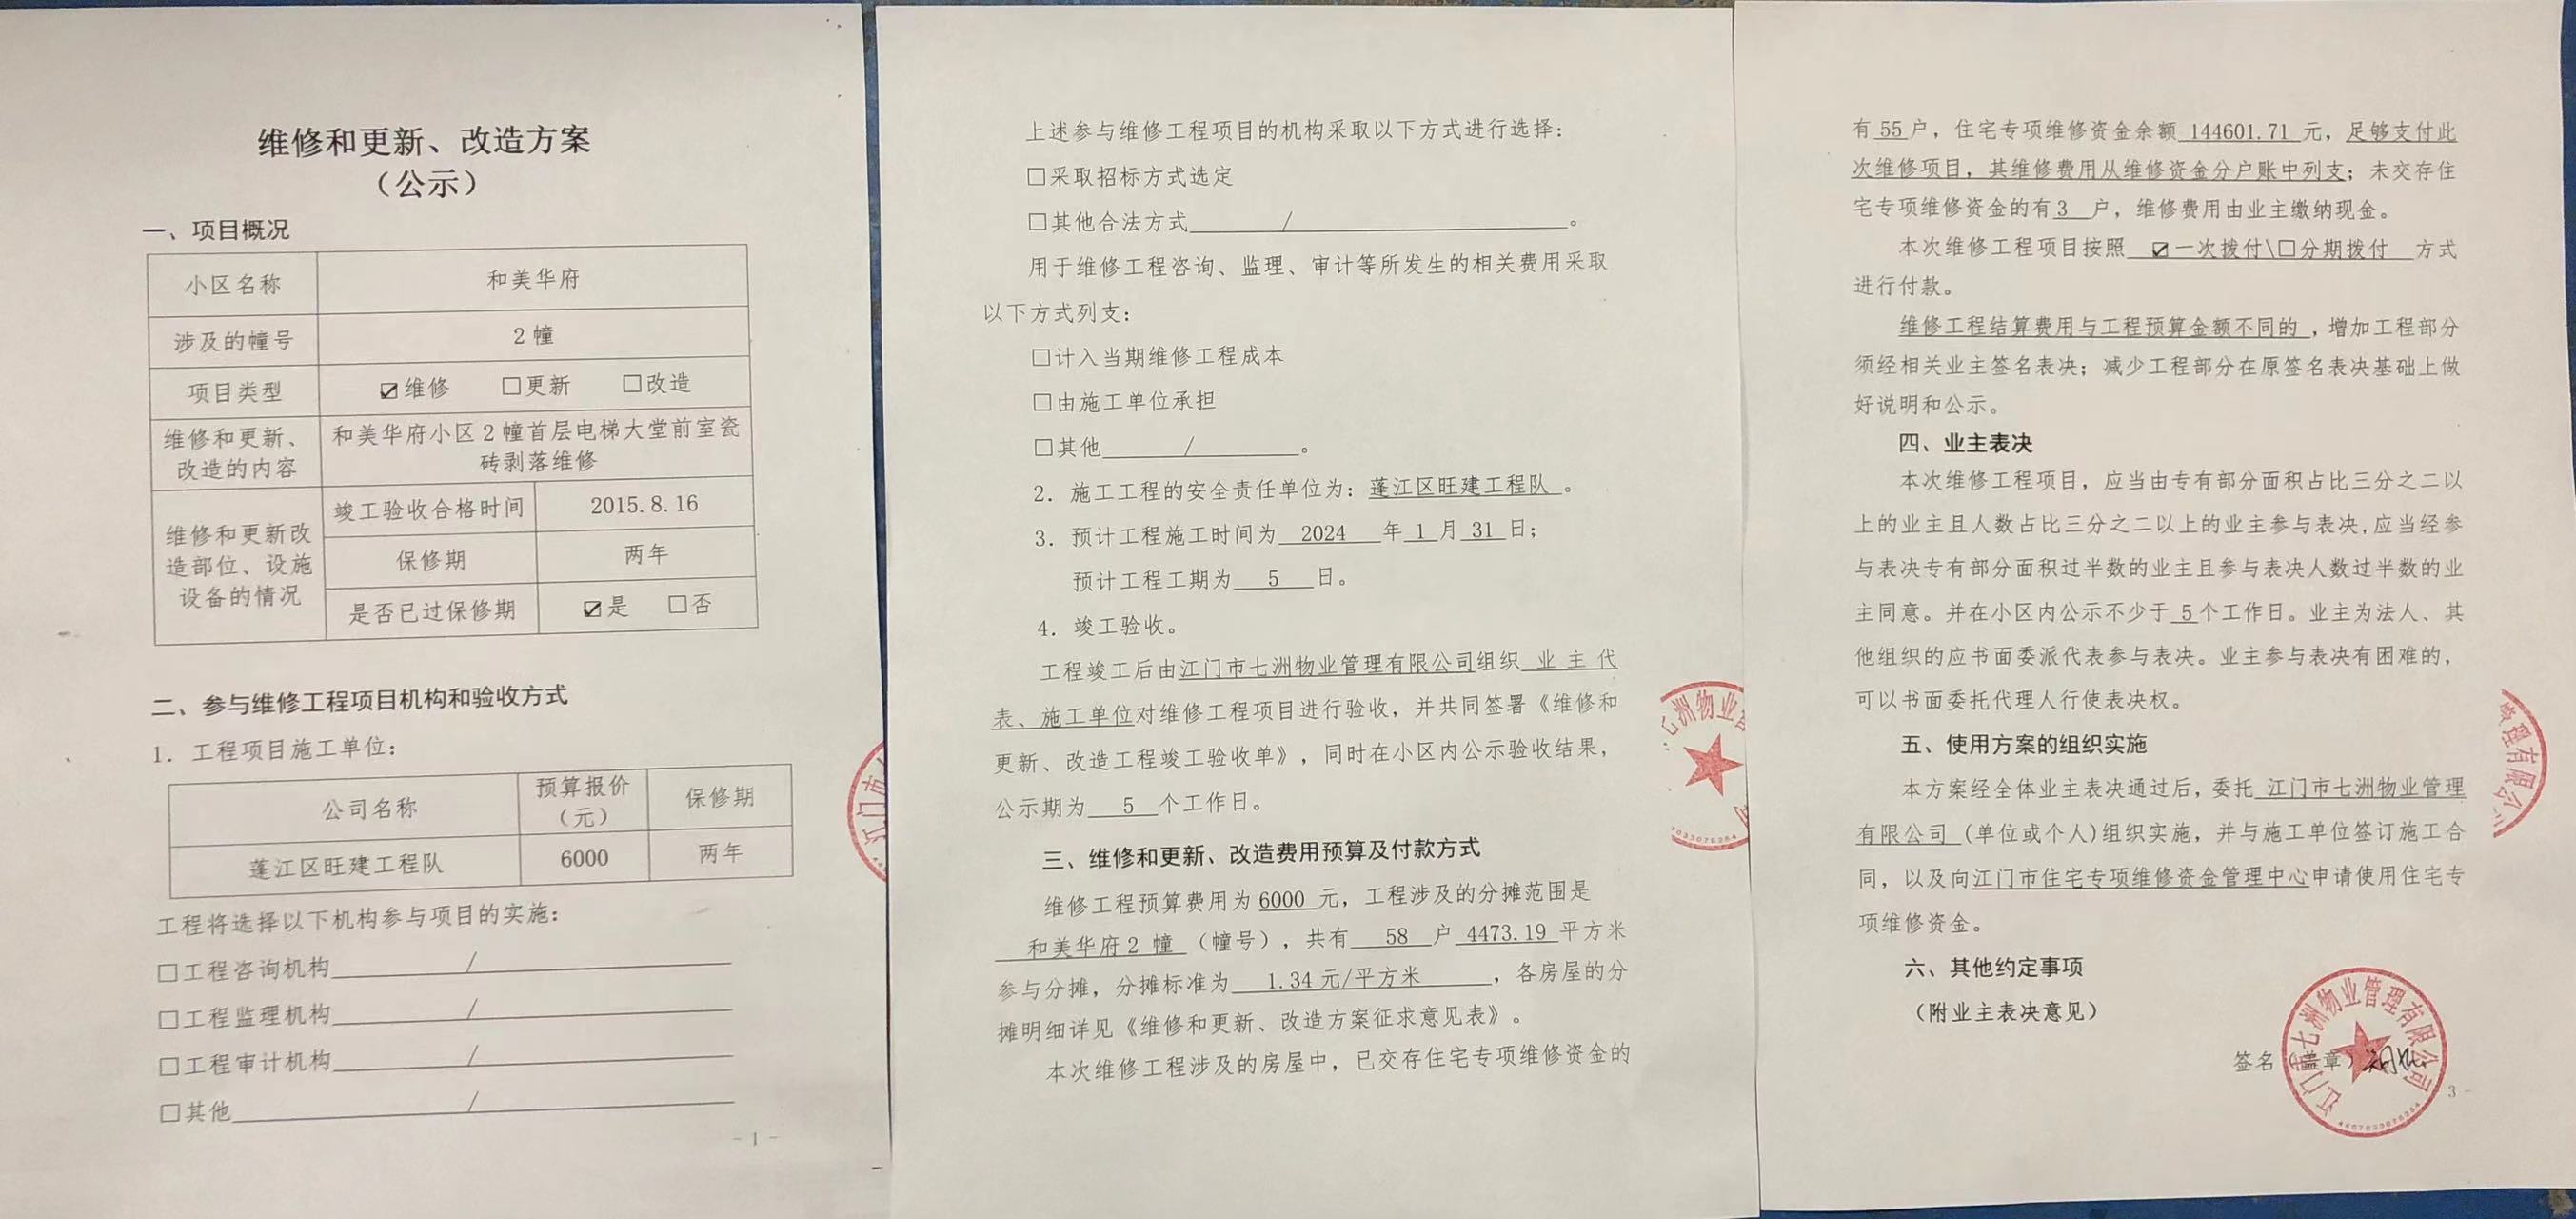 维修和更新、改造方案
（公示）
一、项目概况
小区名称 和美华府
涉及的幢号 2幢
项目类型 ☑维修 □更新 □改造
维修和更新、改造的内容 和美华府小区2幢首层电梯大堂前室瓷砖剥落维修
维修和更新改造部位、设施设备的情况
竣工验收合格时间 2015.8.16
保修期 两年
是否已过保修期 ☑是 □否
二、参与维修工程项目机构和验收方式
1. 工程项目施工单位：
公司名称 预算报价（元） 保修期
蓬江区旺建工程队 6000 两年
工程将选择以下机构参与项目的实施：
□工程咨询机构 /
□工程监理机构 /
□工程审计机构 /
□其他 /
- 1 -
上述参与维修工程项目的机构采取以下方式进行选择：
□采取招标方式选定
□其他合法方式 / 。
用于维修工程咨询、监理、审计等所发生的相关费用采取
以下方式列支：
□计入当期维修工程成本
□由施工单位承担
□其他 / 。
2. 施工工程的安全责任单位为：蓬江区旺建工程队 。
3. 预计工程施工时间为 2024 年 1 月 31 日；
预计工程工期为 5 日。
4. 竣工验收。
工程竣工后由江门市七洲物业管理有限公司组织 业 主 代
表、施工单位对维修工程项目进行验收，并共同签署《维修和
更新、改造工程竣工验收单》，同时在小区内公示验收结果，
公示期为 5 个工作日。
三、维修和更新、改造费用预算及付款方式
维修工程预算费用为 6000 元，工程涉及的分摊范围是
和美华府2 幢 （幢号），共有 58 户 4473.19 平方米
参与分摊，分摊标准为 1.34 元/平方米 ，各房屋的分
摊明细详见《维修和更新、改造方案征求意见表》。
本次维修工程涉及的房屋中，已交存住宅专项维修资金的
有 55 户，住宅专项维修资金余额 144601.71 元，足够支付此
次维修项目，其维修费用从维修资金分户账中列支；未交存住
宅专项维修资金的有 3 户，维修费用由业主缴纳现金。
本次维修工程项目按照 ☑一次拨付\□分期拨付 方式
进行付款。
维修工程结算费用与工程预算金额不同的 ，增加工程部分
须经相关业主签名表决；减少工程部分在原签名表决基础上做
好说明和公示。
四、业主表决
本次维修工程项目，应当由专有部分面积占比三分之二以
上的业主且人数占比三分之二以上的业主参与表决,应当经参
与表决专有部分面积过半数的业主且参与表决人数过半数的业
主同意。并在小区内公示不少于 5 个工作日。业主为法人、其
他组织的应书面委派代表参与表决。业主参与表决有困难的，
可以书面委托代理人行使表决权。
五、使用方案的组织实施
本方案经全体业主表决通过后，委托 江门市七洲物业管理
有限公司 (单位或个人)组织实施，并与施工单位签订施工合
同，以及向江门市住宅专项维修资金管理中心申请使用住宅专
项维修资金。
六、其他约定事项
（附业主表决意见）
签名（盖章）
江门市七洲物业管理有限公司
3 -
江门市
七洲物业管
理有限公司